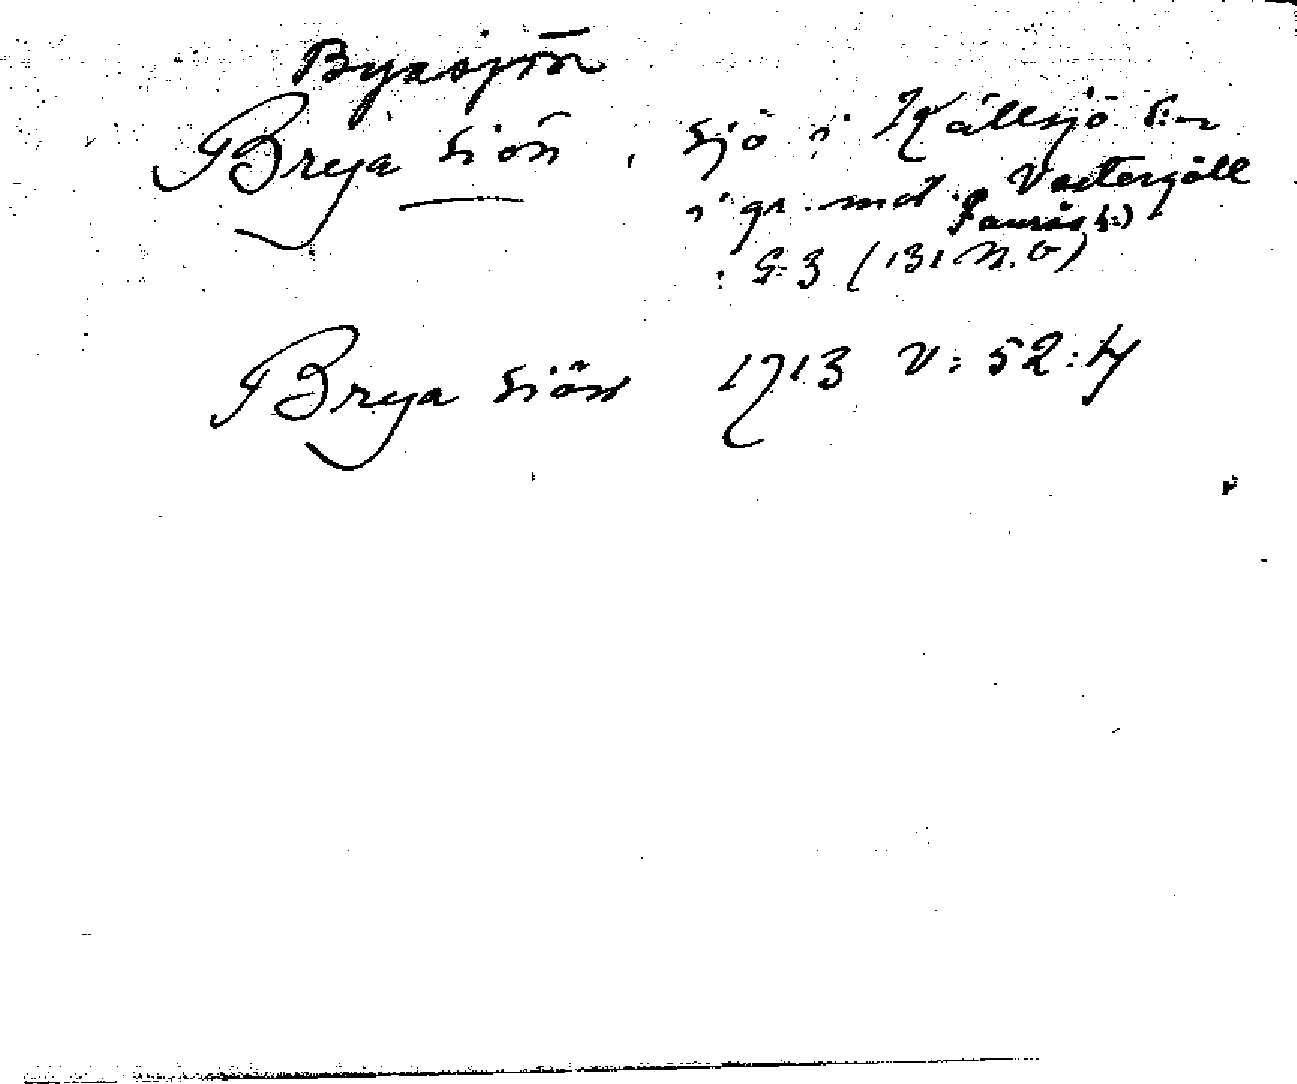 Byasjön
Brya siön, sjö i Källsjö s:n
i gr. mot Västergötl
Faurås h:)
i G. 3 (131 N.O)
Brya siön 1713 V: 52:4